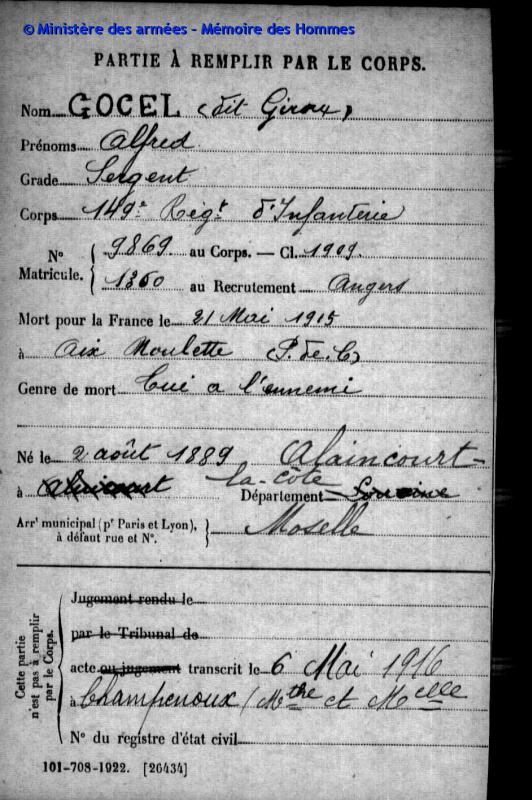 © Ministère des armées - Mémoire des Hommes
PARTIE À REMPLIR PAR LE CORPS.
Nom GOCEL (dit Giroux)
Prénoms Alfred
Grade Sergent
Corps 149e Régt d'Infanterie
N° Matricule. 9869 au Corps. — Cl. 1909.
1360 au Recrutement Angers
Mort pour la France le 21 Mai 1915
à Aix Noulette (P. de. C)
Genre de mort Tué a l'ennemi
Né le 2 août 1889 Alaincourt-
à La-côte Département Lorraine
Arrt municipal (pr Paris et Lyon), Moselle
à défaut rue et N°.
Cette partie n'est pas à remplir par le Corps.
Jugement rendu le
par le Tribunal de
acte ou jugement transcrit le 6 Mai 1916
à Champenoux (Mthe et Melle
N° du registre d'état civil
101-708-1922. [26434]